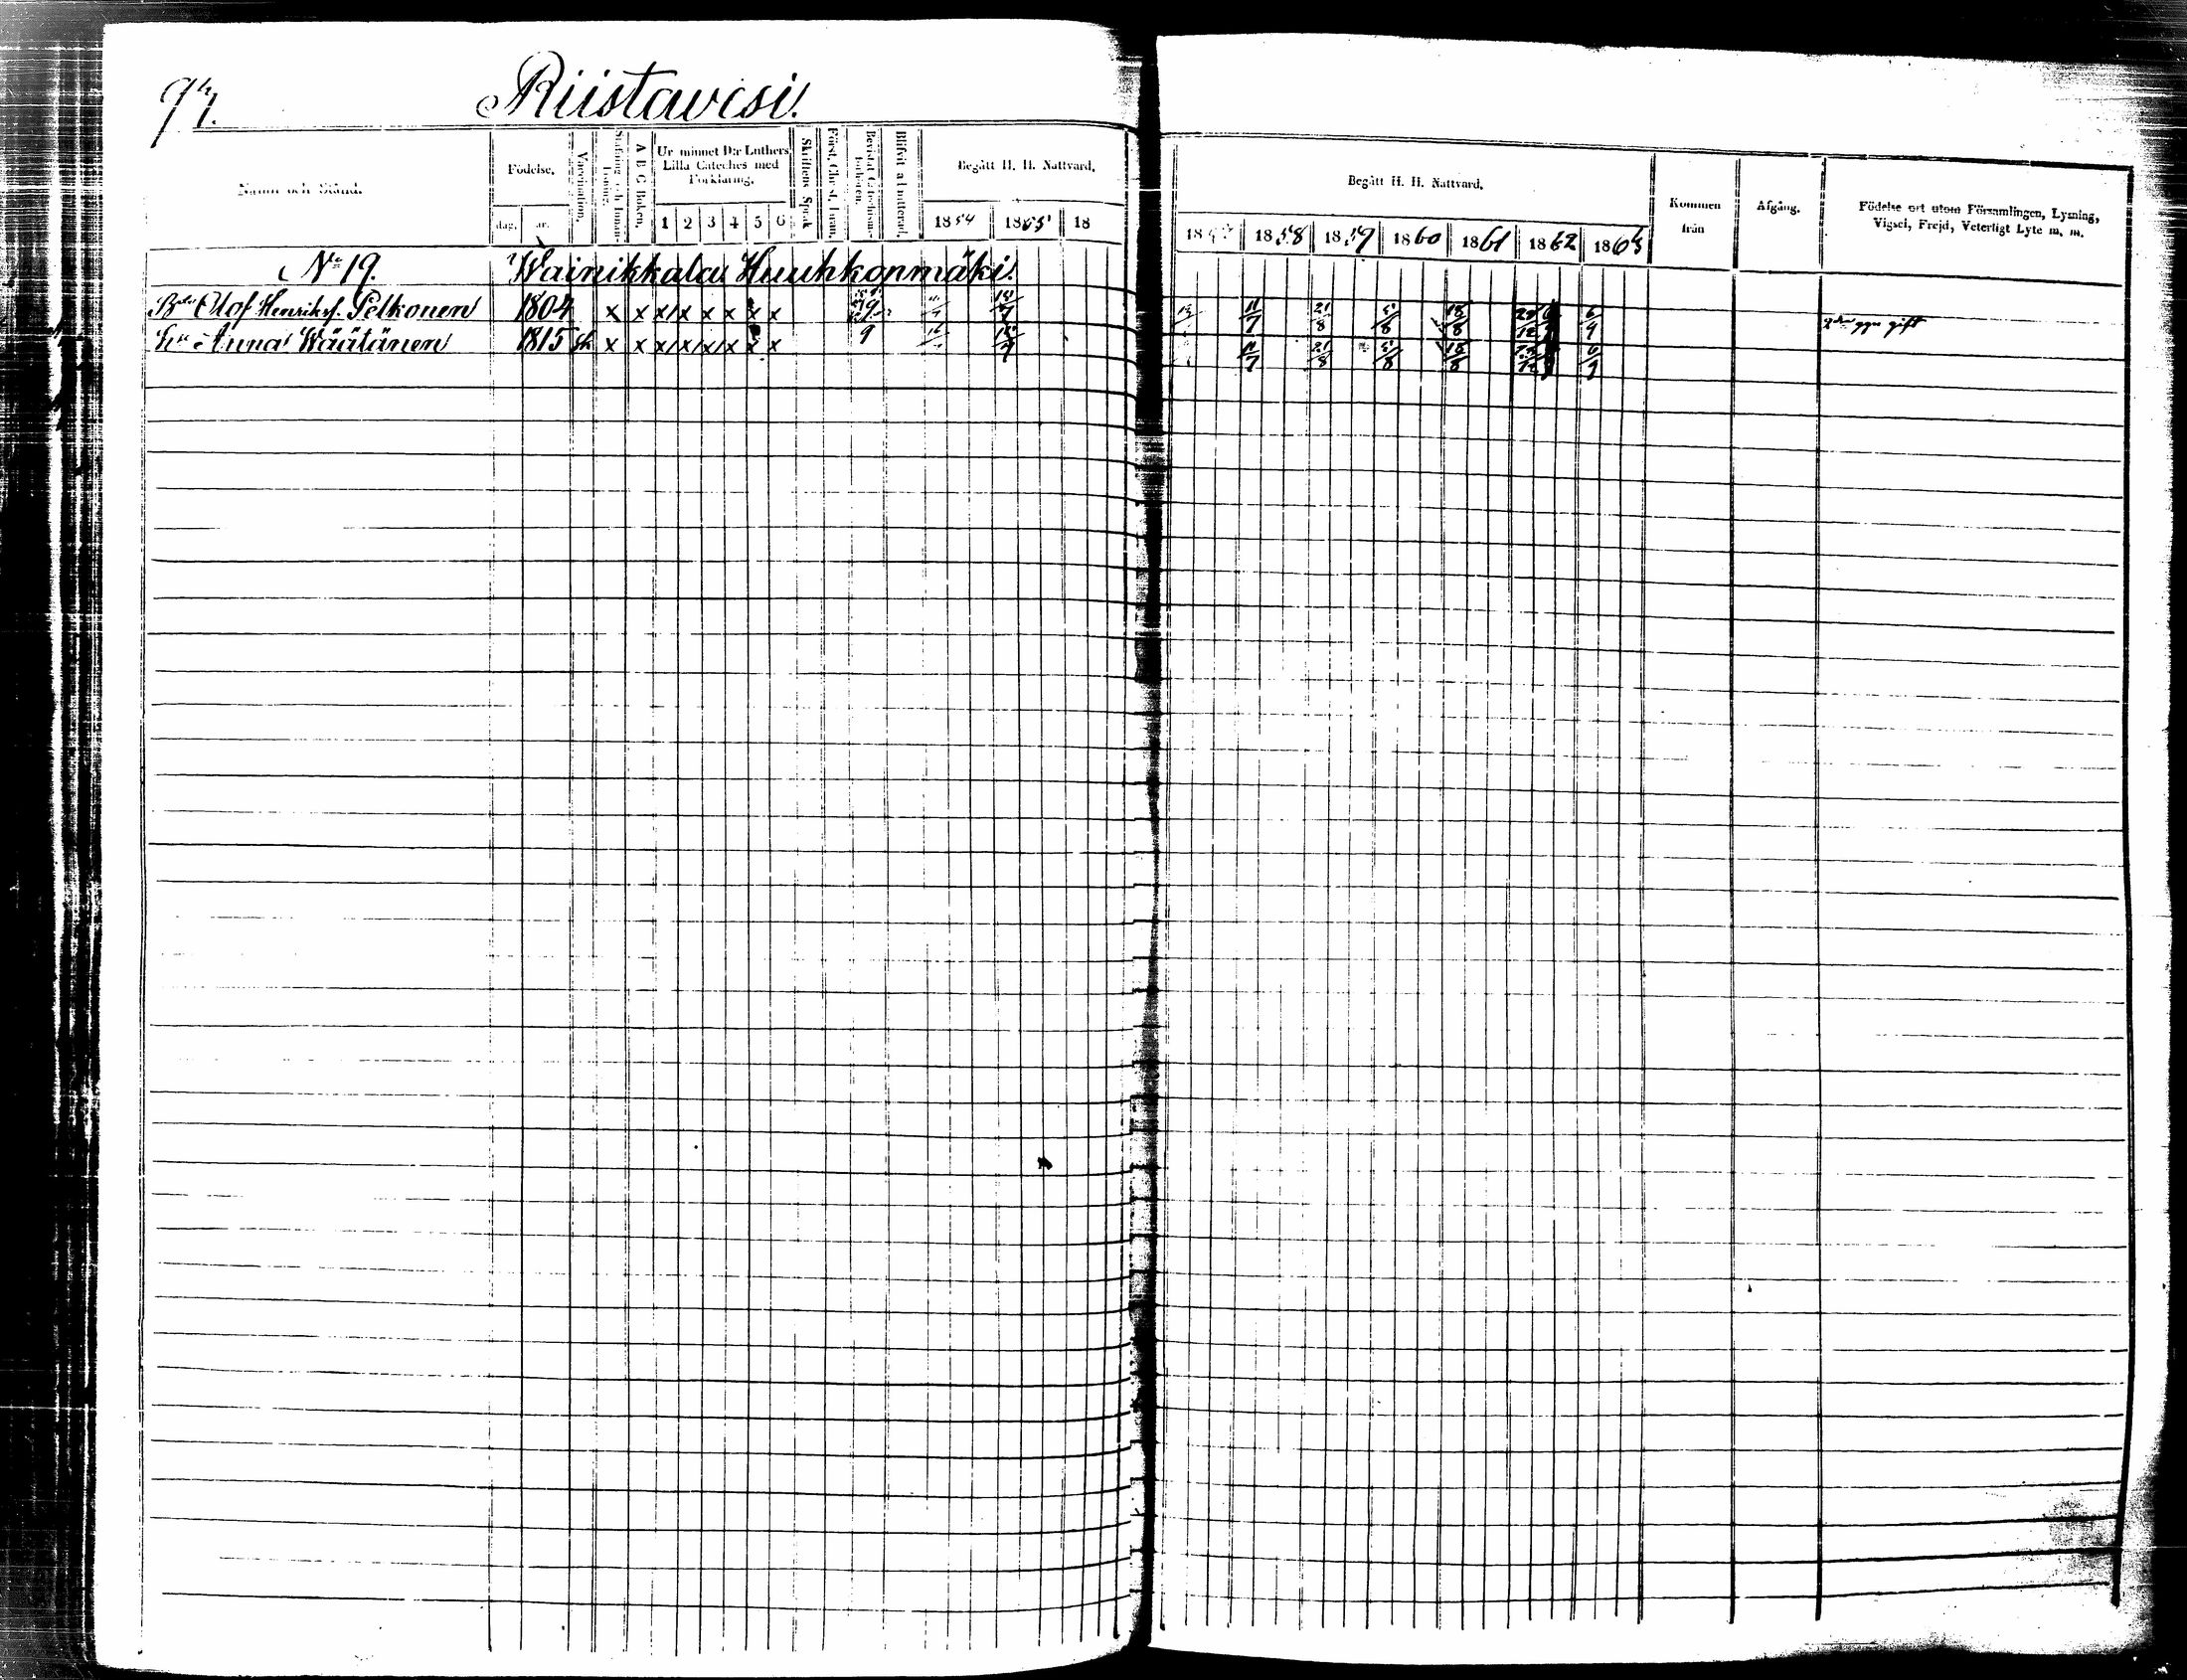 94. Riistavesi.
Namn och Stånd.
Födelse,
dag, år.
Vaccination,
Stafning och Innan-Läsning,
A B C Boken,
Ur minnet D:r Luthers Lilla Cateches med Förklaring,
1 2 3 4 5 6
Skriftens Språk
Först. Christ. Läran,
Blifvit admitterad,
Begått H. H. Nattvard,
1854 1855 18
Begått H. H. Nattvard,
18 1858 1859 1860 1861 1862 1863
Kommen från
Afgång,
Födelse ort utom Församlingen, Lysning, Vigsel, Frejd, Veterligt Lyte m. m.
No 19. Wainikkala Huuhkonmäki.
Olof Henriks. Pelkonen 1804 x x x x x x x x 11/7 21/8 5/8 18/8 6/9 gift
Anna Wäätänen 1815 x x x x x x x x 9 11/7 21/8 5/8 18/8 6/9